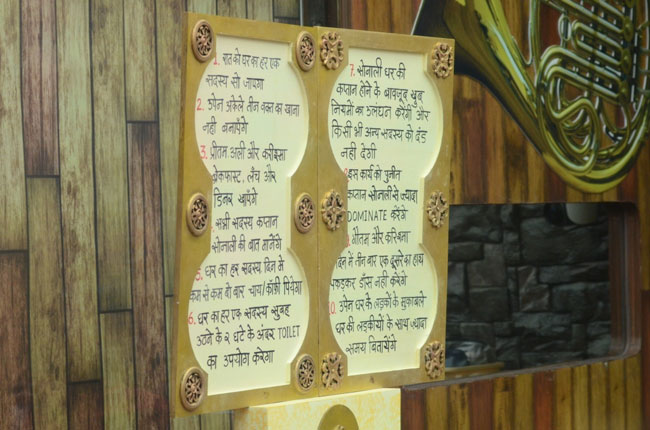 1. रात को घर का हर एक
सदस्य सो जाएगा
2. उपेन अकेले तीन वक्त का खाना
नही बनाएंगे
3. प्रीतम अली और करीश्मा
ब्रेकफास्ट, लंच और
डिनर खाएँगे
सभी सदस्य कप्तान
सोनाली की बात मानेंगे
5. घर का हर सदस्य दिन मे
कम से कम दो बार चाय/कॉफी पियेगा
6. घर का हर एक सदस्य सुबह
उठने के २ घंटे के अंदर TOILET
का उपयोग करेगा
7. सोनाली घर की
कप्तान होने के बावजूद खुद
नियमों का उलंघन करेंगी और
किसी भी अन्य सदस्य को दंड
नही देंगी
इस कार्य को पुनीत
कप्तान सोनाली से ज्यादा
DOMINATE करेंगे
गौतम और करिश्मा
दिन में तीन बार एक दूसरे का हाथ
पकड़कर डाँस नही करेंगे
10. उपेन घर के लड़कों के मुकाबले
घर की लड़कीयों के साथ ज्यादा
समय बितायेंगे